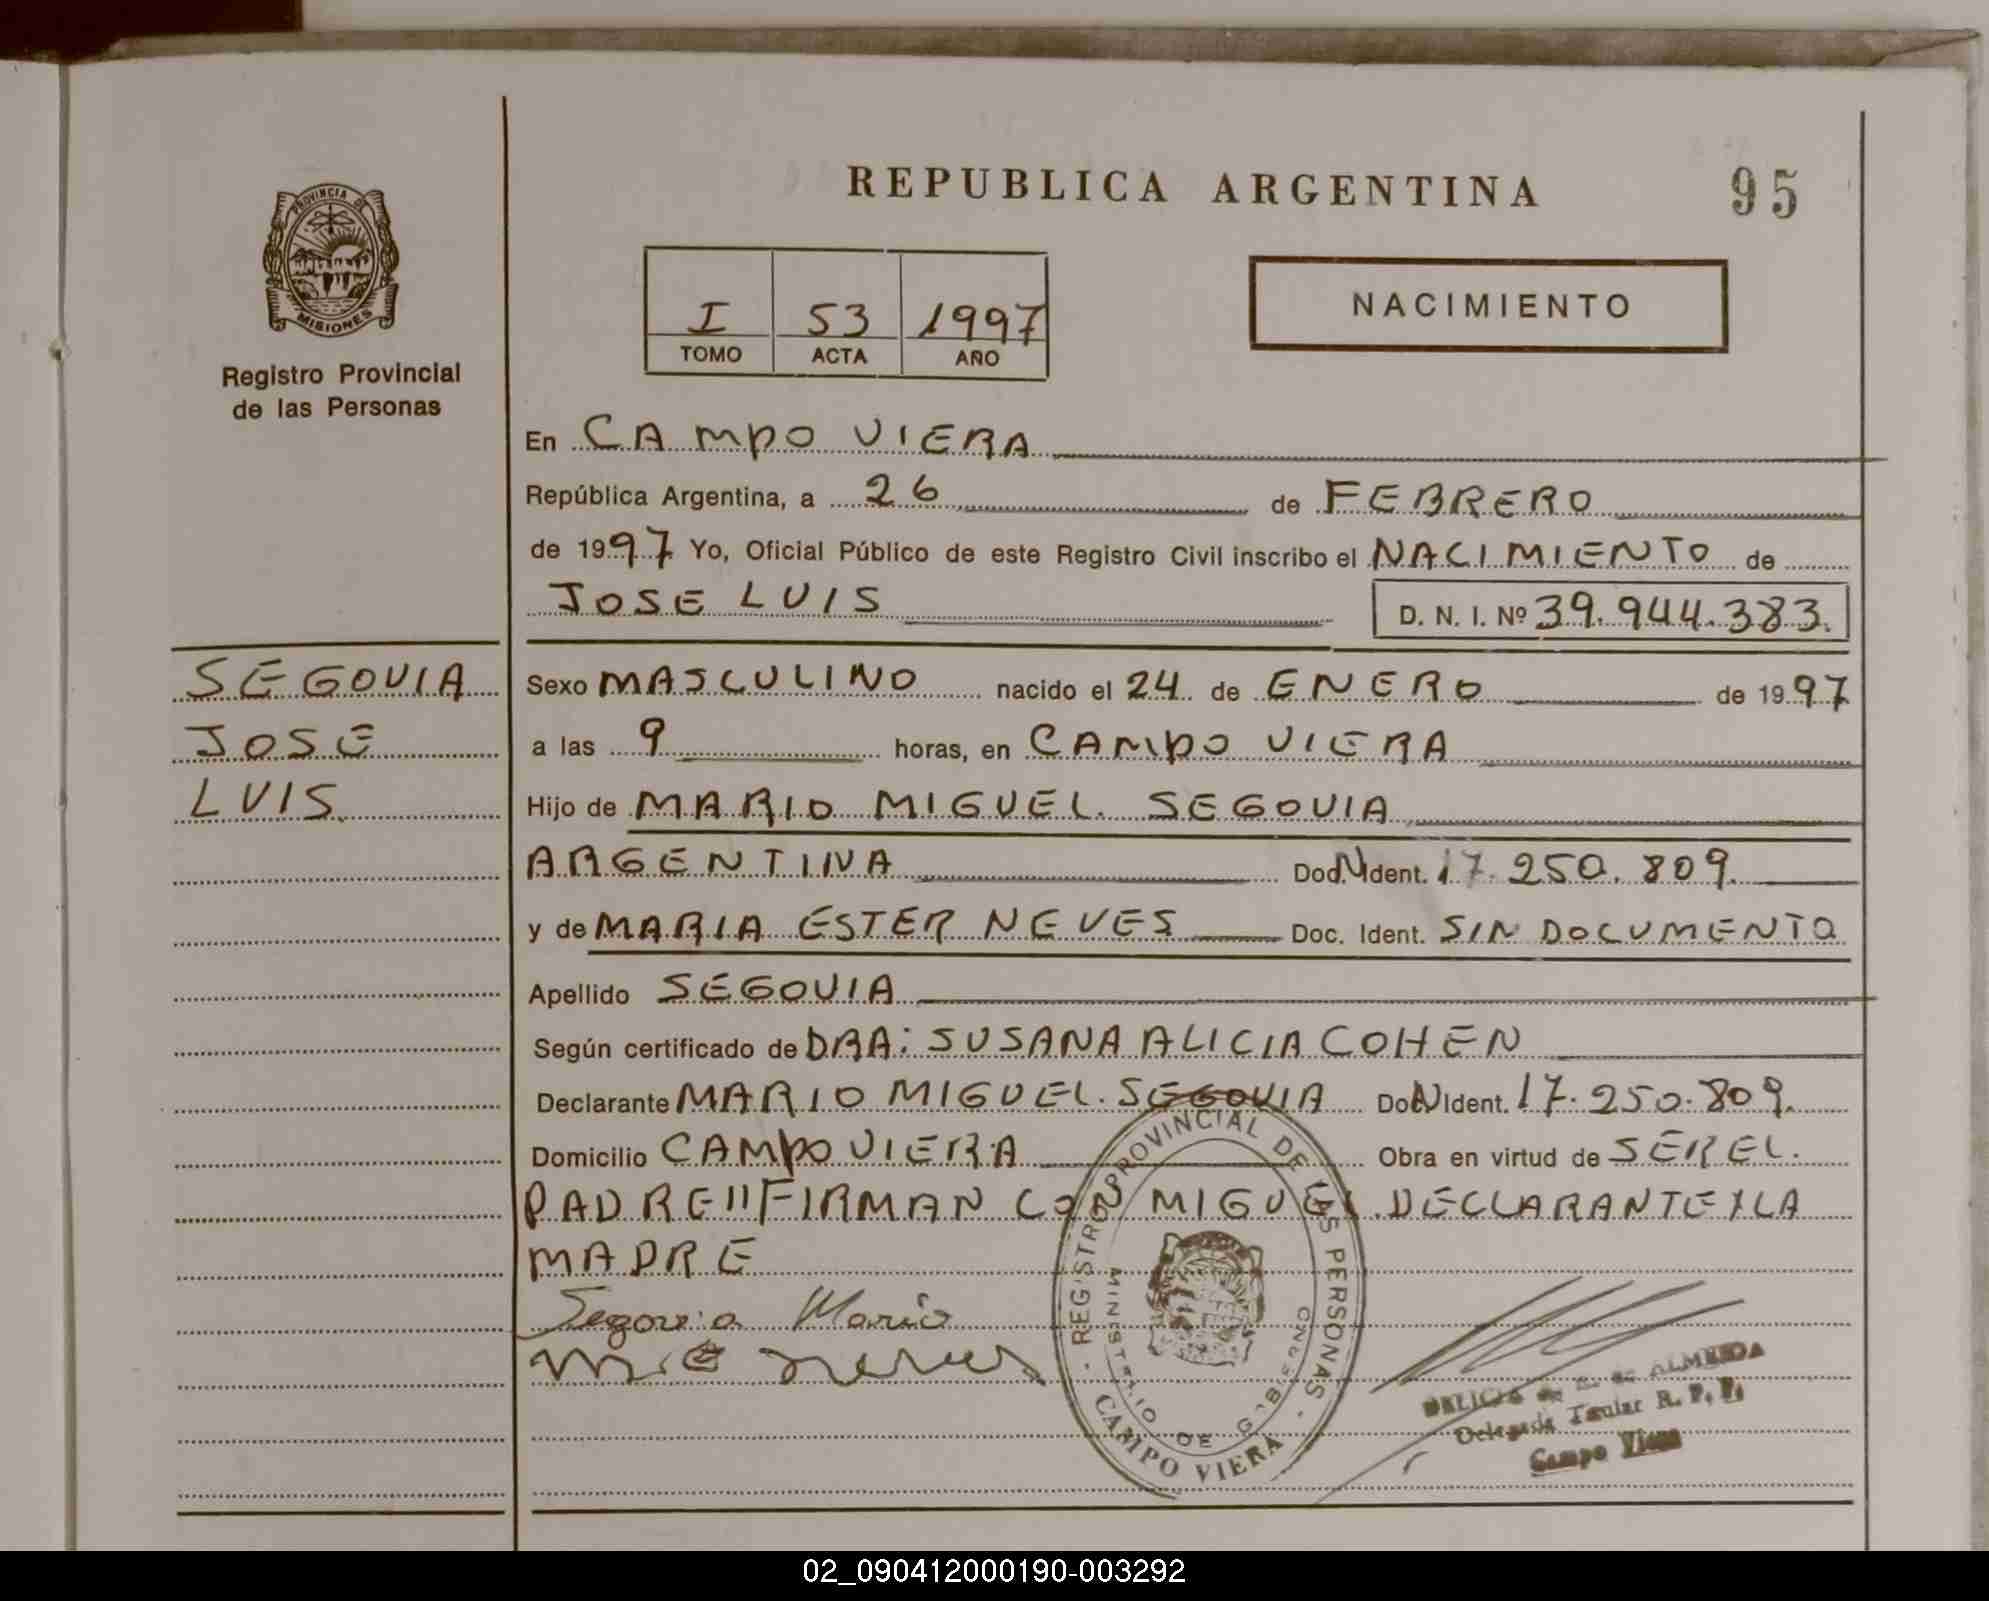 REPUBLICA ARGENTINA
95
PROVINCIA DE
MISIONES
Registro Provincial
de las Personas
I 53 1997
TOMO ACTA AÑO
NACIMIENTO
En CAMPO VIERA
República Argentina, a 26 de FEBRERO
de 1997 Yo, Oficial Público de este Registro Civil inscribo el NACIMIENTO de
JOSE LUIS D. N. I. Nº 39.944.383.
SEGOVIA
JOSE
LUIS.
Sexo MASCULINO nacido el 24 de ENERO de 1997
a las 9 horas, en CAMPO VIERA
Hijo de MARIO MIGUEL SEGOVIA
ARGENTINA Doc. Ident. 17.250.809.
y de MARIA ESTER NEVES Doc. Ident. SIN DOCUMENTO
Apellido SEGOVIA
Según certificado de DRA: SUSANA ALICIA COHEN
Declarante MARIO MIGUEL SEGOVIA Doc. Ident. 17.250.809.
Domicilio CAMPO VIERA Obra en virtud de SER EL
PADRE//FIRMAN CON MIGO EL DECLARANTE Y LA
MADRE
Segovia Mario
neves
REGISTRO PROVINCIAL DE LAS PERSONAS
MINISTERIO DE GOBIERNO
CAMPO VIERA
DELICIA ALMEIDA
Delegada Titular R. P. P.
Campo Viera
02_090412000190-003292